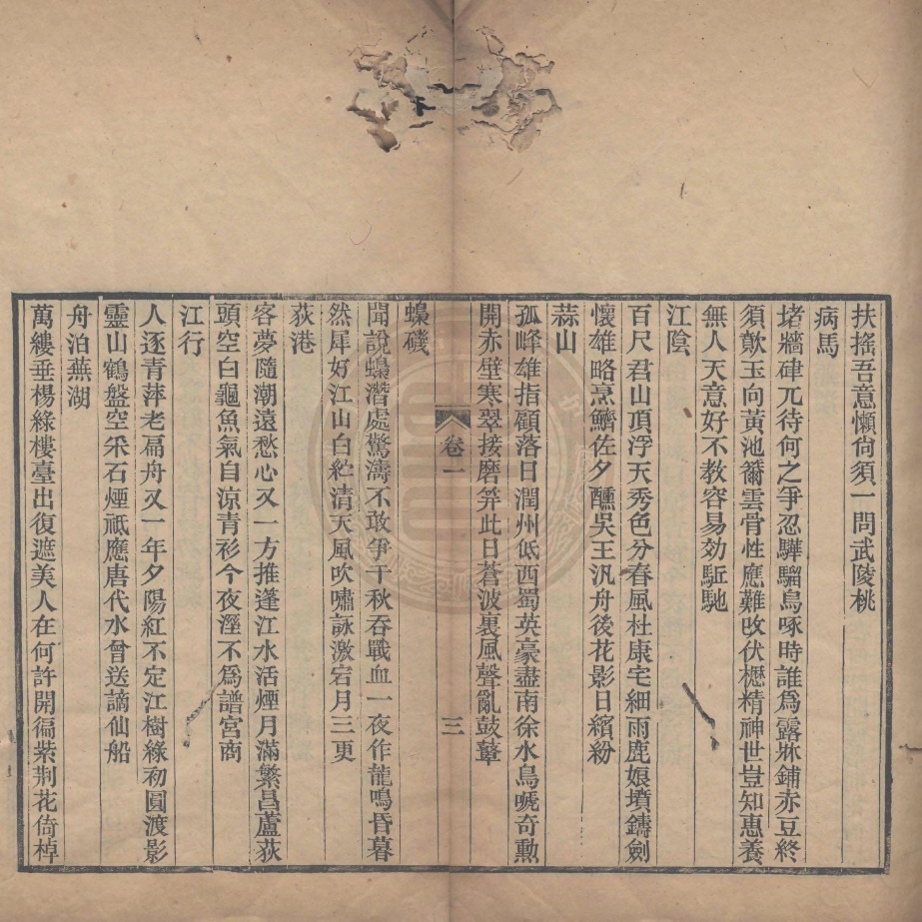 扶搖吾意懶尙須一問武陵桃
病馬
堵牆硉兀待何之爭忍驊騮鳥啄時誰爲露牀鋪赤豆終
須歕玉向黃池爾雲骨性應難改伏櫪精神世豈知惠養
無人天意好不敎容易効駈馳
江陰
百尺君山頂浮天秀色分春風杜康宅細雨鹿娘墳鑄劍
懷雄略烹鱭佐夕醺吳王汎舟後花影日繽紛
蒜山
孤峰雄指顧落日潤州低西蜀英豪盡南徐水鳥嗁奇勳
開赤壁寒翠接磨笄此日蒼波裏風聲亂鼓鼙
卷一
三
蟂磯
聞說蟂潛處驚濤不敢爭千秋吞戰血一夜作龍鳴昏暮
然犀好江山白紵清天風吹嘯詠激宕月三更
荻港
客夢隨潮遠愁心又一方推篷江水活煙月滿繁昌蘆荻
頭空白龜魚氣自涼青衫今夜溼不爲譜宮商
江行
人逐青萍老扁舟又一年夕陽紅不定江樹綠初圓渡影
靈山鶴盤空采石煙祗應唐代水曾送謫仙船
舟泊蕪湖
萬縷垂楊綠樓臺出復遮美人在何許開徧紫荆花倚棹